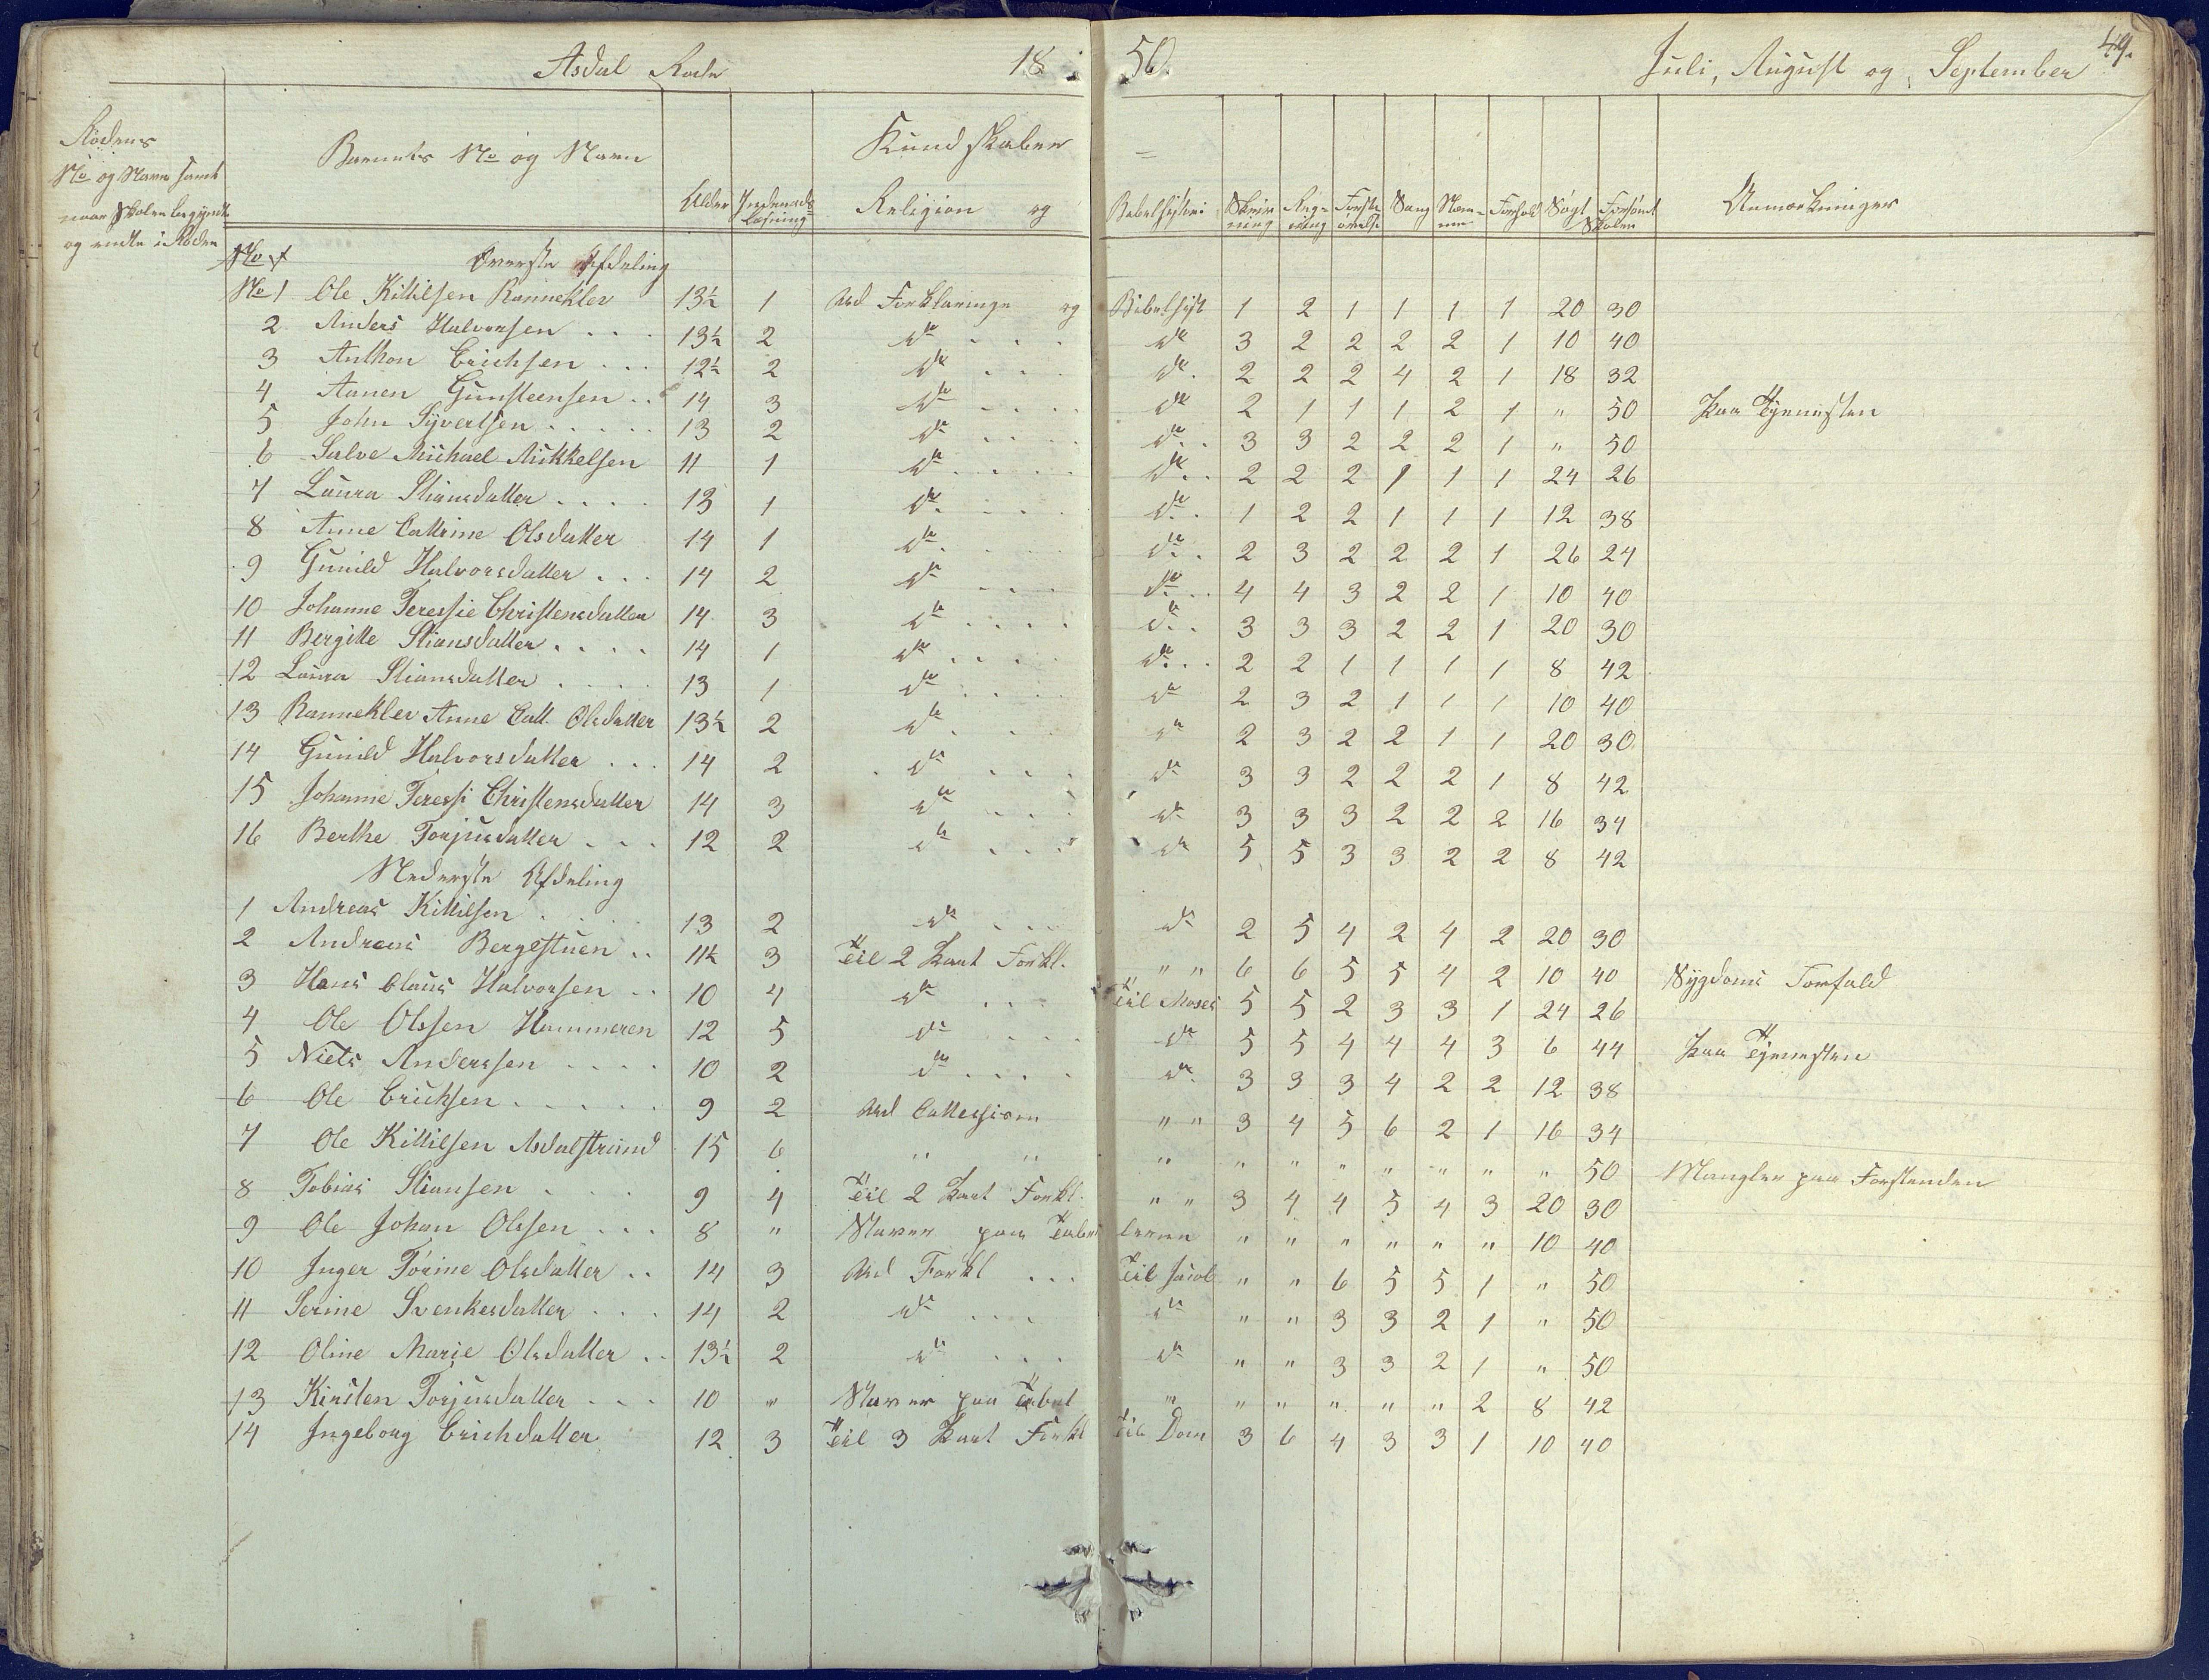 Asdal Rode 1850. Juli, August og September 49.
Rodens
No og Navn samt
naar Skolen begyndte
og endte i Roden
Barnets No og Navn
Alder
Indenads-
læsning
Kundskaber
Religion og Bibelhistori
Skriv
ning
Reg-
ning
Forsta
Sang
Nem-
me
Forhold
Søgt Forsømt
Skolen
Anmærkninger
No 7 Øverste Afdeling
No 1 Ole Kittilsen Rannekler 13½ 1 Ud Forklaringe og Bibelhist 1 2 1 1 1 1 20 30
2 Anders Halvorsen . . . 13½ 2 do . . . do 3 2 2 2 2 1 10 40
3 Anthon Erichsen . . . 12½ 2 do . . . do . 2 2 2 4 2 1 18 32
4 Aanen Gunsteensen . . 14 3 do . . . . do 2 1 1 1 2 1 " 50 Paa Tjenesten
5 John Syvertsen . . . . . 13 2 do . . . . do . . 3 3 2 2 2 1 " 50
6 Salve Michael Mikkelsen 11 1 do . . . . do . . 2 2 2 1 1 1 24 26
7 Laura Stiansdatter . . . . 13 1 do . . . . do . . 1 2 2 1 1 1 12 38
8 Anne Cattrine Olsdatter 14 1 do . . . . do . . 2 3 2 2 2 1 26 24
9 Gunild Halvorsdatter . . . 14 2 do . . . do . . 4 4 3 2 2 1 10 40
10 Johanne Teressie Christensdatter 14 3 do . . . . do . . 3 3 3 2 2 1 20 30
11 Bergitte Stiansdatter . . . . 14 1 do . . . . do . . . 2 2 1 1 1 1 8 42
12 Laura Stiansdatter . . . . 13 1 do . . . . do 2 3 2 1 1 1 10 40
13 Rannekler Anne Catt. Olsdatter 13½ 2 do . . . do 2 3 2 2 1 1 20 30
14 Gunild Halvorsdatter . . . 14 2 do . . . do 3 3 2 2 2 1 8 42
15 Johanne Teressi Christensdatter 14 3 do . . . do 3 3 3 2 2 2 16 34
16 Berthe Torjusdatter . . . 12 2 do . . . do 5 5 3 3 2 2 8 42
Nederste Afdeling
1 Andreas Kittilsen . . . . 13 2 do . . . do 2 5 4 2 4 2 20 30
2 Andreas Bergestuen . . 11½ 3 Til 2 Part Forkl. " " 6 6 5 5 4 2 10 40 Sygdoms Forfald
3 Hans Claus Halvorsen . . 10 4 do . . . Til Moses 5 5 2 3 3 1 24 26
4 Ole Olssen Hammeren 12 5 do . . . . do 5 5 4 4 4 3 6 44 Paa Tjenesten
5 Niels Anderssen . . . . 10 2 do . . . . do 3 3 3 4 2 2 12 38
6 Ole Erichsen . . . . . 9 2 Ud Cattessism " " 3 4 5 6 2 1 16 34
7 Ole Kittilsen Asdalstrand 15 6 " " " " " " " " " " 50 Mangler paa Forstanden
8 Tobias Stiansen . . . 9 4 Til 2 Part Forkl. " " 3 4 4 5 4 3 20 30
9 Ole Johan Olssen . . . 8 " Staver paa Tabellerne " " " " " " 10 40
10 Inger Torine Olsdatter . . 14 3 Ud Forkl . . . Til Jacob " " 6 5 5 1 " 50
11 Serine Svenkesdatter . . . 14 2 do . . . do " " 3 3 2 1 " 50
12 Oline Marie Olsdatter . . 13½ 2 do . . . do " " 3 3 2 1 " 50
13 Kirsten Torjusdatter . . . 10 " Staver paa Tabel " " " " " " 2 8 42
14 Ingeborg Erichdatter 12 3 Til 3 Part Forkl Til Dom 3 6 4 3 3 1 10 40